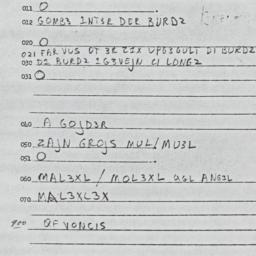 011 O
012 GOMB3 INT3R DER BURDZ
020 O
021 FAR VUS OT 3R Z1X UPG3GULT DI BURDZ
030 D1 BURDZ 1G3VEJN CI LONGZ
031 O
040 A GOJD3R
050 ZAJN GROJS MUL/MU3L
051 O
060 MAL3XL / MOL3XL UGL ANG3L
070 MAL3XL3X
900 OF VONCIS